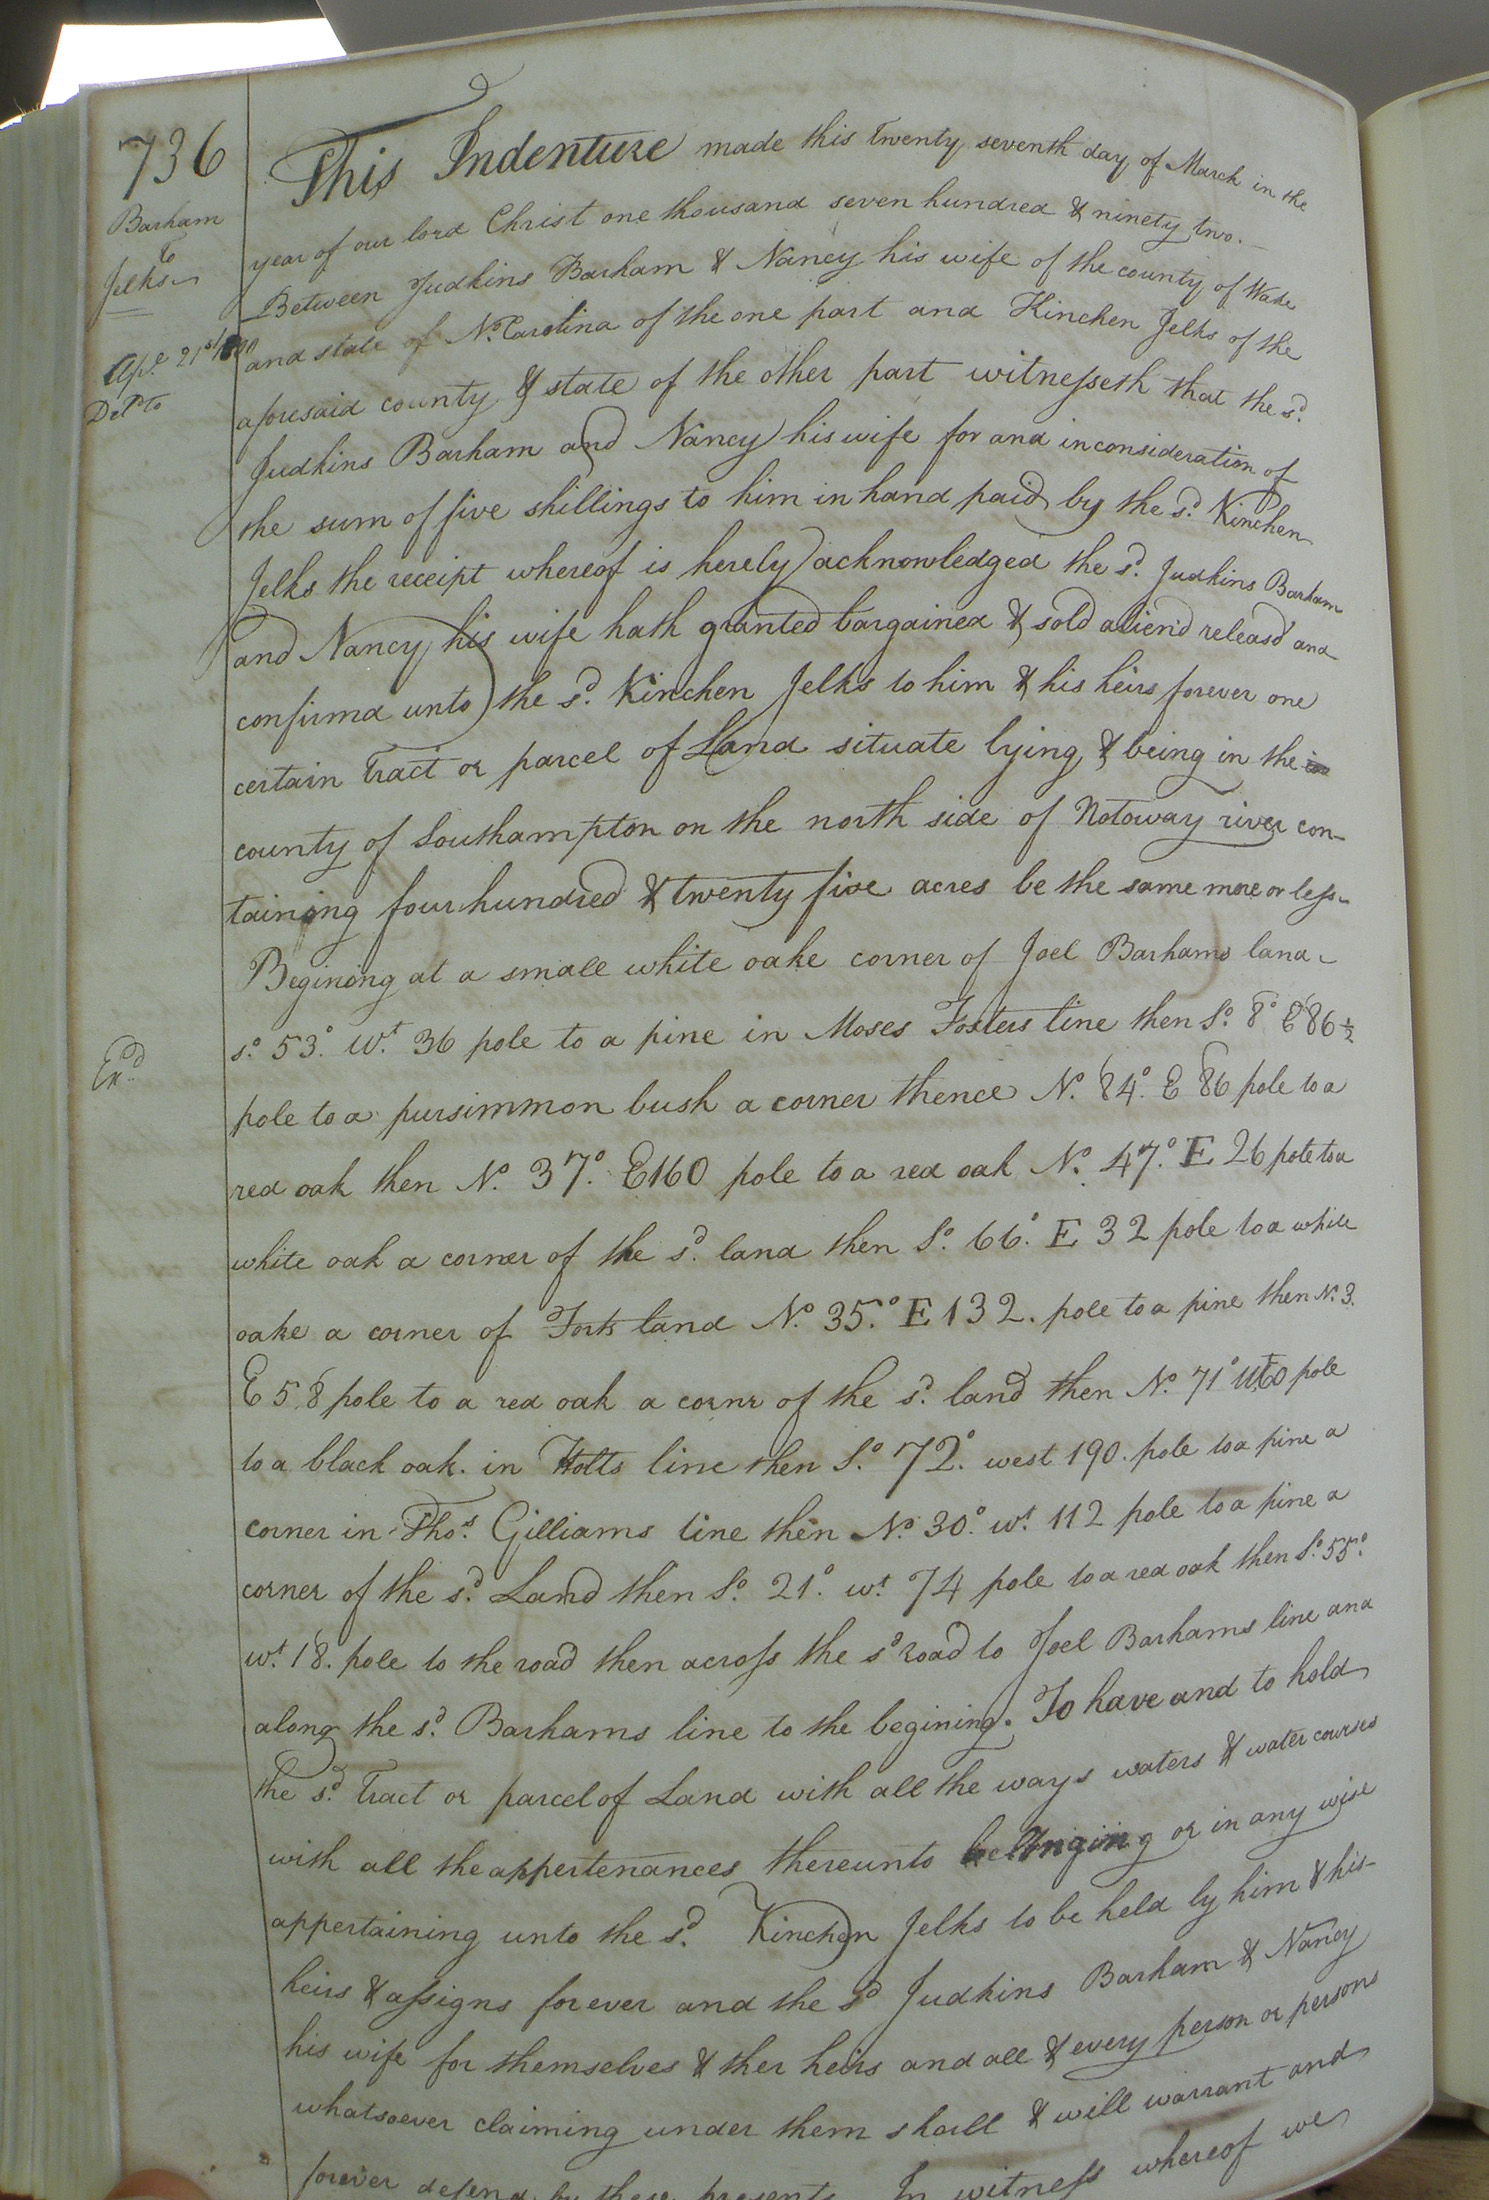 736
Barham
to
Jelks
Ap.e 21st
Del.d to
Ex.d
This Indenture made this twenty seventh day of March in the
year of our lord Christ one thousand seven hundred & ninety two.
Between Judkins Barham & Nancy his wife of the county of Wake
and state of No. Carolina of the one part and Kinchen Jelks of the
aforesaid county & state of the other part witnesseth that the sd.
Judkins Barham and Nancy his wife for and in consideration of
the sum of five shillings to him in hand paid by the sd. Kinchen
Jelks the receipt whereof is herely acknowledged the sd. Judkins Barham
and Nancy his wife hath granted bargained & sold aliend releasd and
confirmd unto the sd. Kinchen Jelks to him & his heirs forever one
certain Tract or parcel of Land situate lying & being in the
county of Southampton on the north side of Notoway river con-
taining four hundred & twenty five acres be the same more or less
Begining at a small white oake corner of Joel Barhams land
so. 53°. Wt. 36 pole to a pine in Moses Fosters line then So. 8° E 86 ½
pole to a pursimmon bush a corner thence No. 84°. E 86 pole to a
red oak then No. 37°. E 160 pole to a red oak No. 47°. E 26 pole to a
white oak a corner of the sd. land then So. 66°. E 32 pole to a white
oake a corner of Forts land No. 35°. E 132. pole to a pine then No. 3.
E 58 pole to a red oak a cornr of the sd. land then No. 71° Wt 60 pole
to a black oak. in Holts line then So. 72°. west 190. pole to a pine a
corner in Thos. Gilliams line then No. 30°. wt. 112 pole to a pine a
corner of the sd. Land then So. 21°. wt. 74 pole to a red oak then So. 55°.
wt. 18. pole to the road then across the sd road to Joel Barhams line and
along the sd. Barhams line to the begining. To have and to hold
the sd. Tract or parcel of Land with all the ways waters & water courses
with all the appertenances thereunto belonging or in any wise
appertaining unto the sd. Kinchen Jelks to be held by him & his
heirs & assigns forever and the sd Judkins Barham & Nancy
his wife for themselves & ther heirs and all & every person or persons
whatsoever claiming under them shall & will warrant and
forever defend by these presents In witness whereof we